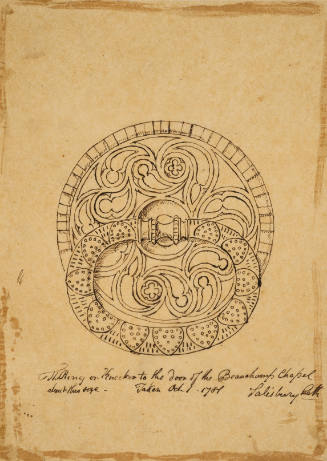 Ring or Knocker to the door of the Beauchamp Chapel
about this size - Taken Oct. 1781 Salisbury Cath